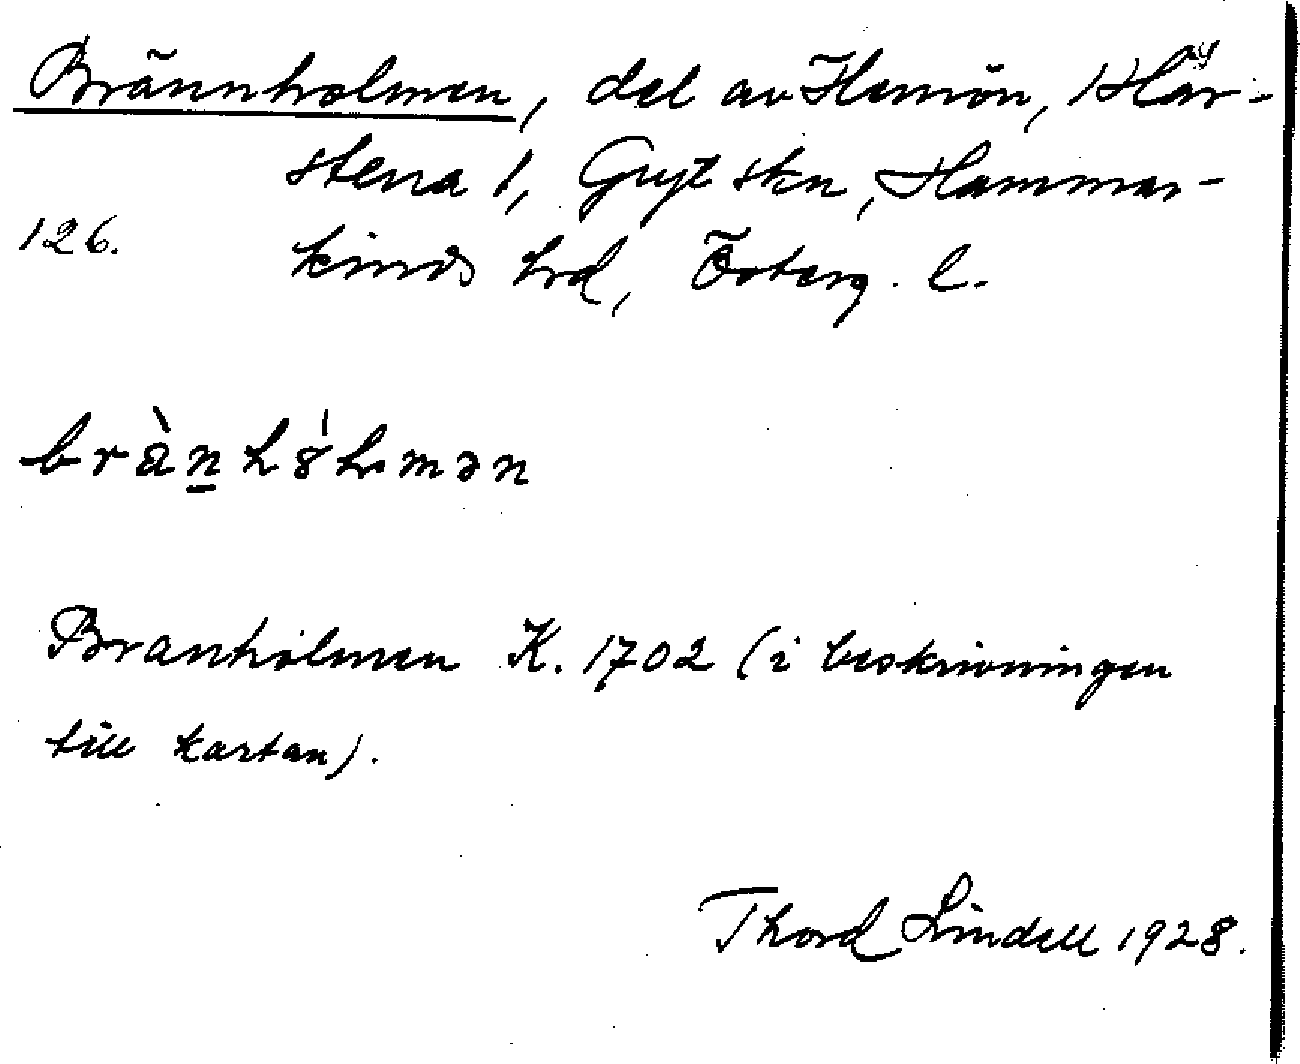 Brännholmen, del av Hemön, Här-
stena 1, Gryt skn, Hammar-
126. kinds hrd, Österg. l.
brànhólmən
Branholmen K. 1702 (i beskrivningen
till kartan).
Thord Lindell 1928.